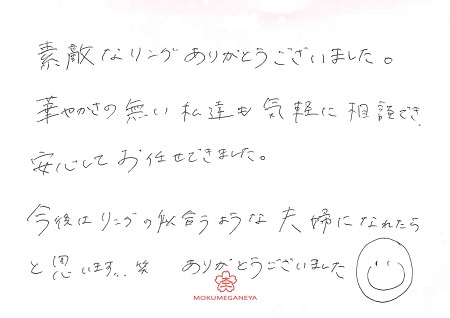 素敵なリングありがとうございました。
華やかさの無い私達も気軽に相談でき、
安心してお任せできました。
今後はリングの似合うような夫婦になれたら
と思います... 笑　ありがとうございました
MOKUMEGANEYA